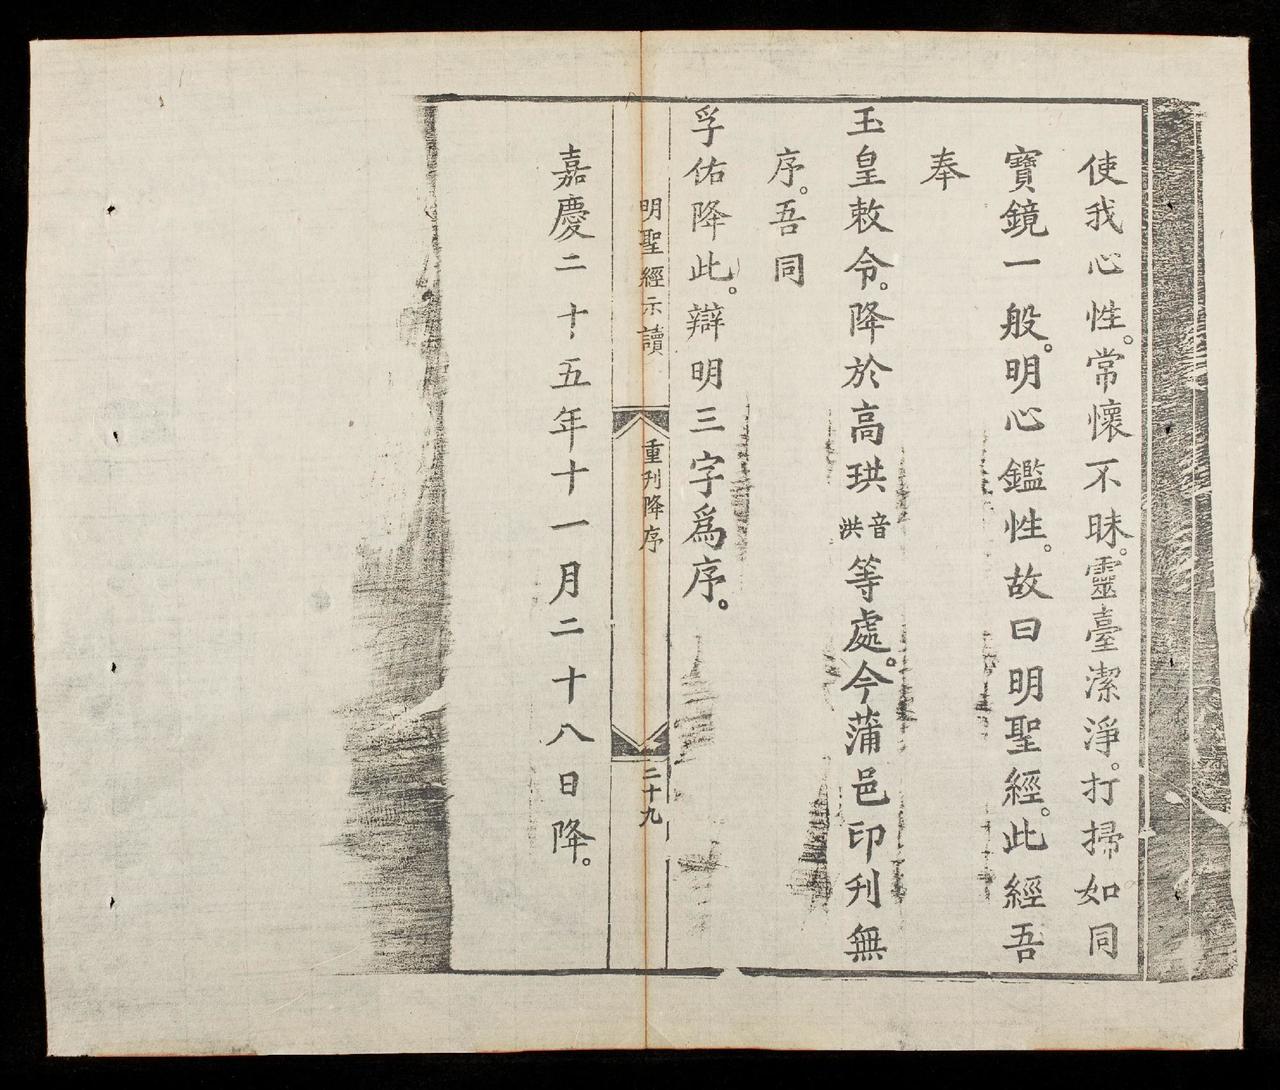 使我心性。常懷不昧。靈臺潔淨。打掃如同
寶鏡一般。明心鑑性。故曰明聖經。此經吾
奉
玉皇敕令。降於高珙音洪等處。今蒲邑印刋無
序。吾同
孚佑降此。辯明三字爲序。
明聖經示讀
重刋降序
二十九
嘉慶二十五年十一月二十八日降。